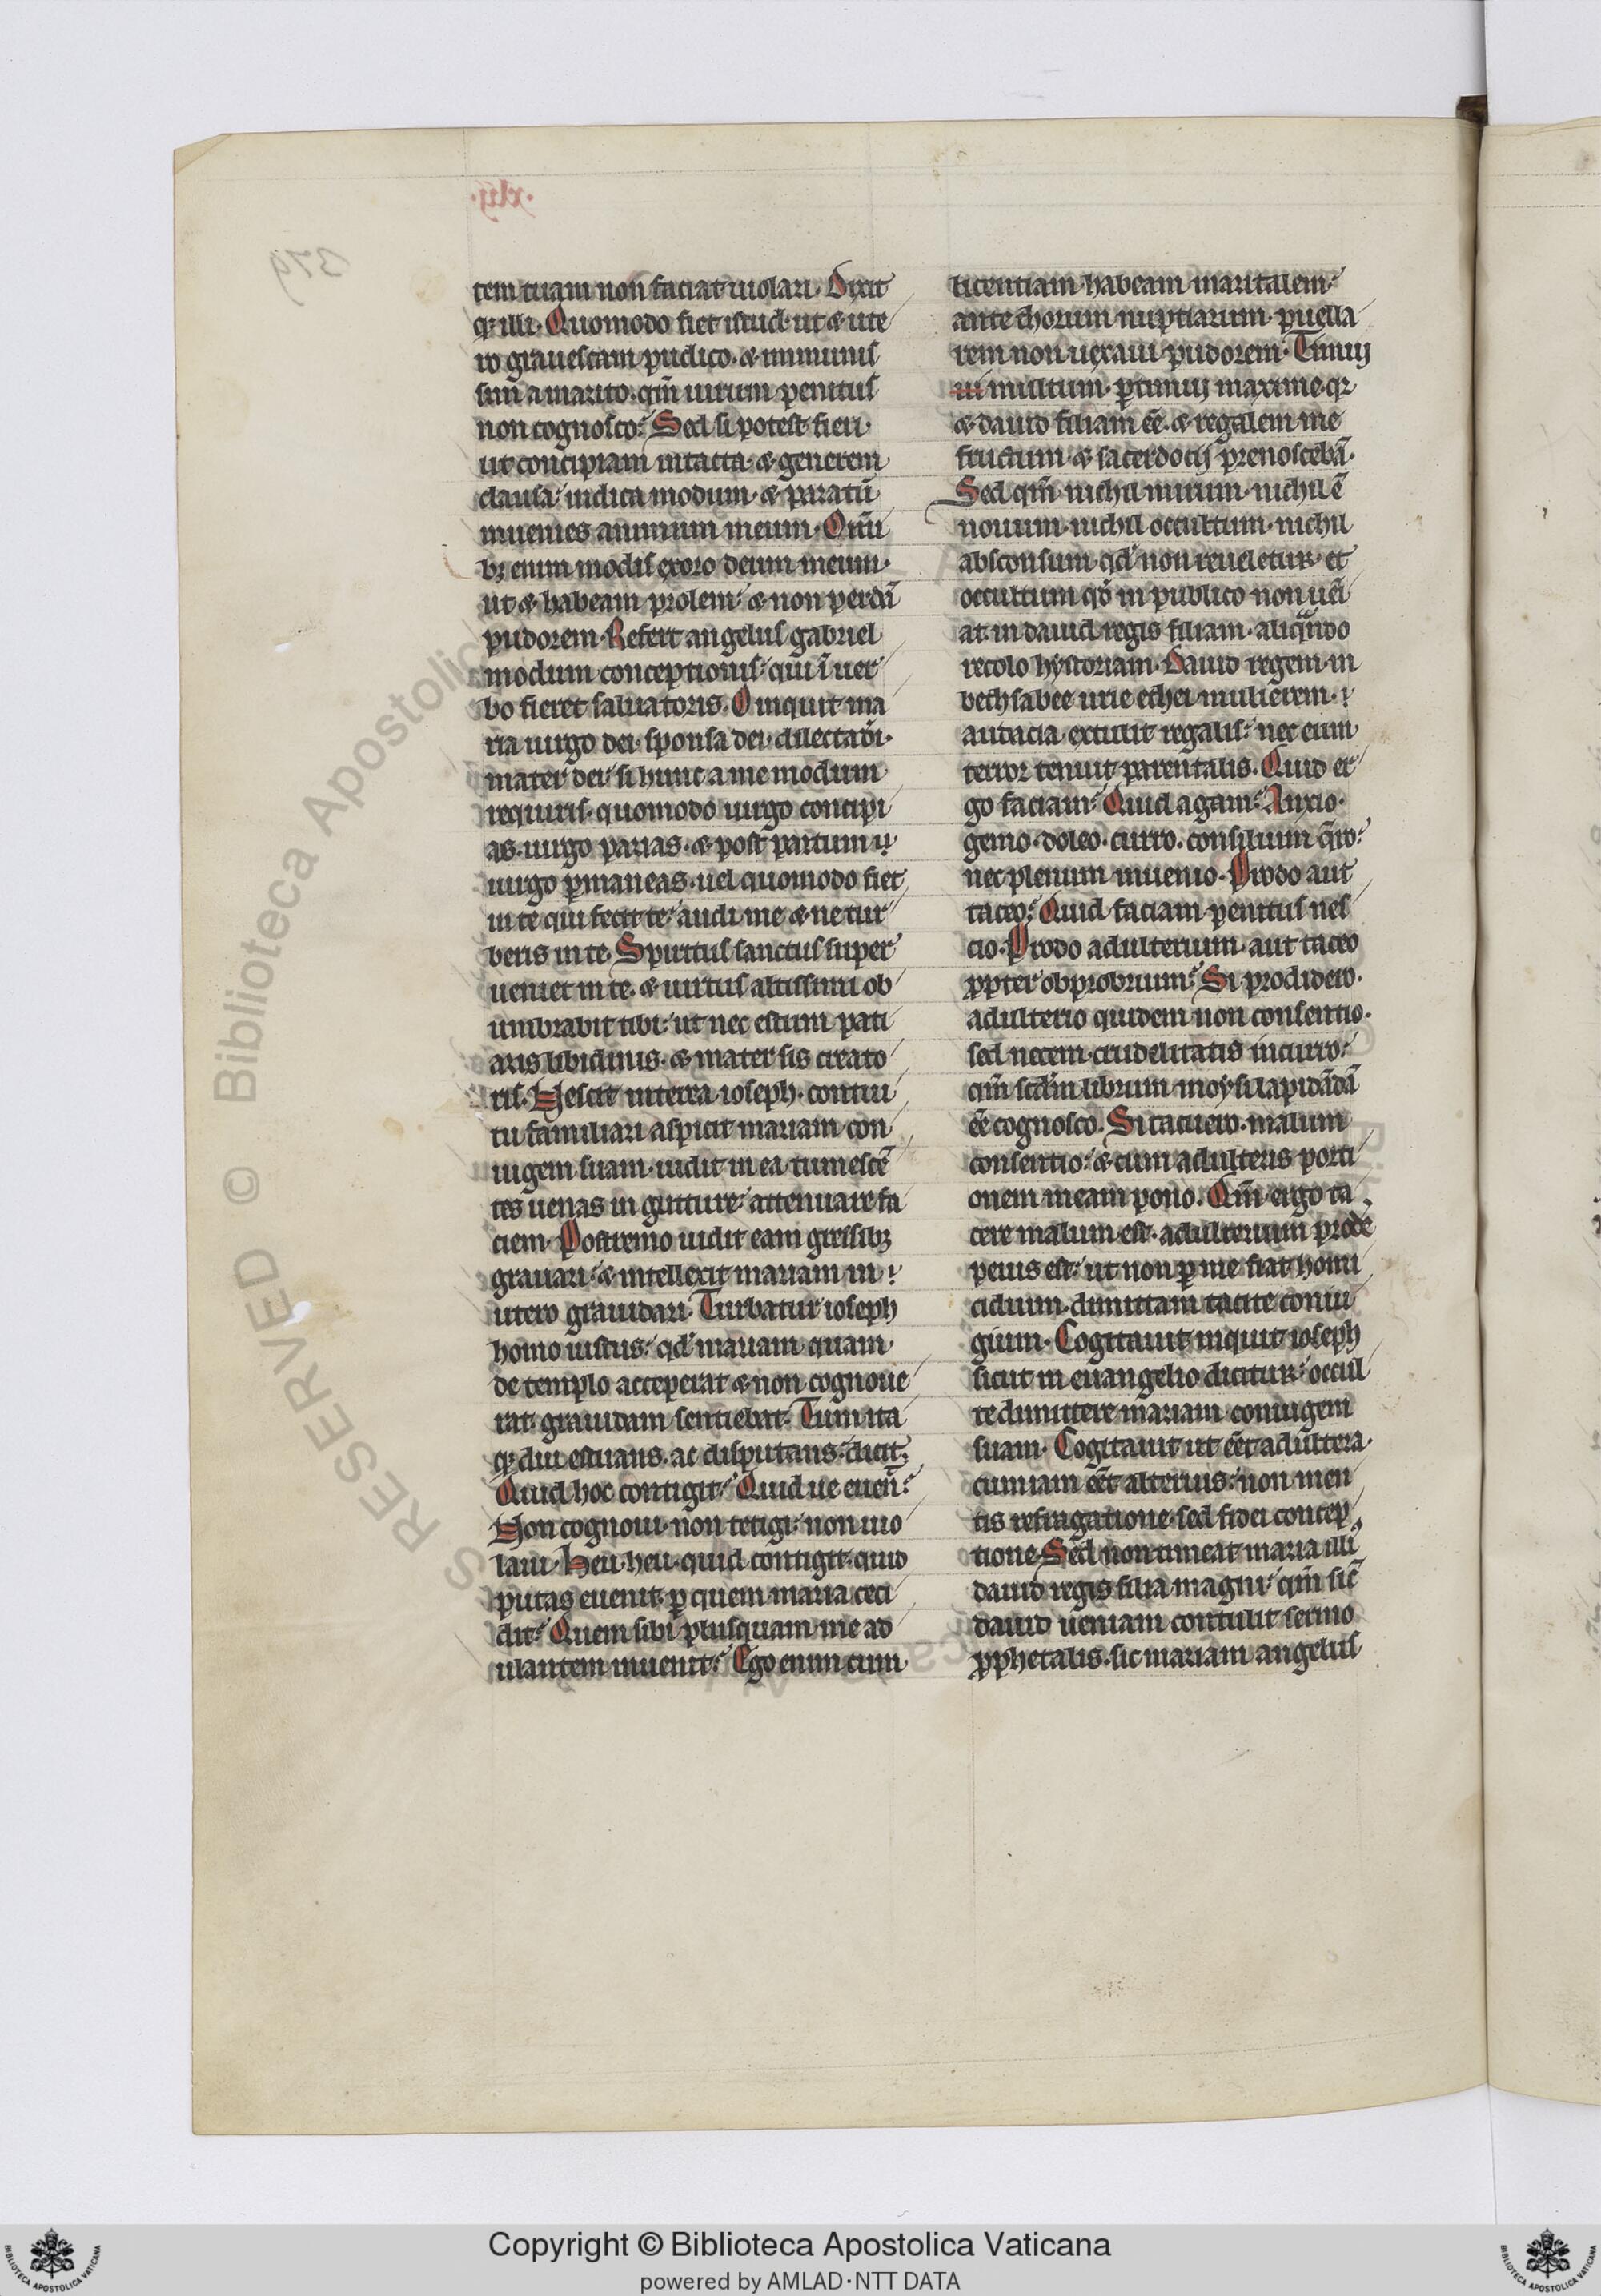 tem tuam non faciat uiolari. Dixit
qꝫ illi. Quomodo fiet istud. ut & ute
ro grauescam pudico. & inmunis
sim a marito. qm̄ uirum penitus
non cognosco? Sed si potest fieri.
ut concipiam intacta. & generem
clausa: indica modum. & paratū
inuenies animum meum. Omī
bꝫ enim modis exoro deum meum.
ut & habeam prolem: & non perdā
pudorem. Refert angelus gabriel
modum conceptionis: qui ī uer
bo fieret saluatoris. O inquit ma
ria uirgo dei. sponsa dei. dilecta dī.
mater dei: si hunc a me modum
requiris. quomodo uirgo concipi
as. uirgo parias. & post partum
uirgo ꝑmaneas. uel quomodo fiet
in te qui fecit te: audi me & ne tur
beris in te. Spiritus sanctus super
ueniet in te. & uirtus altissimi ob
umbrabit tibi: ut nec estum pati
aris libidinis. & mater sis creato
ris. Nescit interea ioseph. contui
tu familiari aspicit mariam con
iugem suam. uidit in ea tumescē
tes uenas in gutture: attenuare fa
ciem. Postremo uidit eam gressibꝫ
grauari: & intellexit mariam in
utero grauidari. Turbatur ioseph
homo iustus: qd̓ mariam quam
de templo acceperat & non cognoue
rat. grauidam sentiebat. Tum ita
qꝫ diu estuans. ac disputans: dicit:
Quid hoc contigit? Quid ue euen̄?
Non cognoui. non tetigi. non uio
laui. Heu. heu. quid contigit. quid
putas euenit. ꝑ quem maria ceci
dit? Quem sibi plusquam me ad
ulantem inuenit? Ego enim cum
licentiam habeam maritalem:
ante chorum nuptiarum. puella
rem non uexaui pudorem. Timui
multum. ꝑtimui maxime. qꝛ
& dauid filiam eē. & regalem me
fructum & sacerdocij prenoscebā.
Sed qm̄ nichil mirum. nichil ē
nouum. nichil occultum. nichil
absconsum. qd̓ non reueletur. et
occultum qd̓ in publico non ueī
at. in dauid regis filiam. aliqn̄do
recolo hystoriam. Dauid regem in
bethsabee urie ethei mulierem.
audacia extulit regalis: nec eum
terror tenuit parentalis. Quid er
go faciam? Quid agam? Anxio.
gemo. doleo. curro. consilium q̄ro:
nec plenum inuenio. Prodo aut
taceo? Quid faciam penitus nes
cio. Prodo adulterium. aut taceo
ꝓpter obprobrium? Si prodidero.
adulterio quidem non consentio.
sed necem crudelitatis incurro:
qm̄ scdm̄ librum moysi lapidādā
eē cognosco. Si tacuero. malum
consentio: & cum adulteris porti
onem meam pono. Qm̄ ergo ta
cere malum est. adulterium prode
peius est: ut non ꝑ me fiat homi
cidium. dimittam tacite coniu
gium. Cogitauit inquit ioseph
sicut in euangelio dicitur: occul
te dimittere mariam coniugem
suam. Cogitauit ut eēt adultera.
cum iam eēt alterius: non men
tis refragatione. sed fidei concep
tione. Sed non timeat maria illi
dauid regis filia magni: qm̄ sic̄
dauid ueniam contulit sermo
ꝓphetalis. sic mariam angelus
Copyright © Biblioteca Apostolica Vaticana
powered by AMLAD·NTT DATA